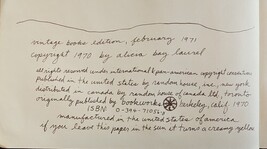 vintage books edition, february 1971
copyright 1970 by alicia bay laurel
all rights reserved under international & pan-american copyright convention
published in the united states by random house, inc., new york
distributed in canada by random house of canada ltd., toronto
originally published by bookworks berkeley, calif. 1970
ISBN 0-394-71056-7
manufactured in the united states of america
if you leave this paper in the sun it turns a creamy yellow